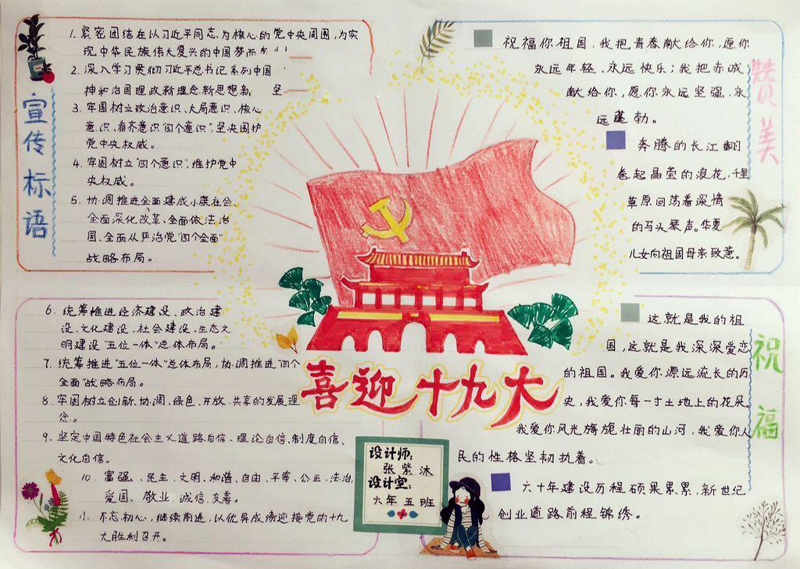 宣传标语
1. 紧密团结在以习近平同志为核心的党中央周围,为实
现中华民族伟大复兴的中国梦而
2. 深入学习贯彻习近平总书记系列
神和治国理政新理念新思想新
3. 牢固树立政治意识、大局意识、核心
意识、看齐意识"四个意识",坚决维护
党中央权威。
4. 牢固树立"四个意识",维护党中
央权威。
5. 协调推进全面建成小康社会、
全面深化改革、全面依法治
国、全面从严治党"四个全面"
战略布局。
6. 统筹推进经济建设、政治建
设、文化建设、社会建设、生态文
明建设"五位一体"总体布局。
7. 统筹推进"五位一体"总体布局,协调推进"四个
全面"战略布局。
8. 牢固树立创新、协调、绿色、开放、共享的发展理
念。
9. 坚定中国特色社会主义道路自信、理论自信、制度自信、
文化自信。
10. 富强、民主、文明、和谐、自由、平等、公正、法治,
爱国、敬业、诚信、友善。
不忘初心,继续前进,以优异成绩迎接党的十九
大胜利召开。
喜迎十九大
设计师:
张紫沐
设计室:
六年五班
赞美
祝福你祖国,我把青春献给你,愿你
永远年轻、永远快乐;我把赤诚
献给你,愿你永远坚强、永
远蓬勃。
奔腾的长江翻
卷起晶莹的浪花,千里
草原回荡着深情
的马头琴声。华夏
儿女向祖国母亲致意。
祝福
这就是我的祖
国,这就是我深深爱恋
的祖国。我爱你源远流长的历
史,我爱你每一寸土地上的花朵,
我爱你风光旖旎壮丽的山河,我爱你人
民的性格坚韧执着。
六十年建设历程硕果累累,新世纪
创业道路前程锦绣。